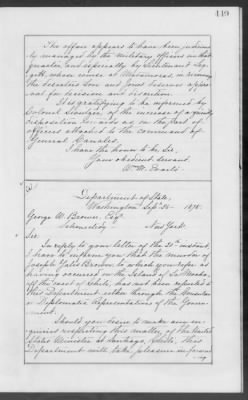 449
The affair appears to have been judiciously
managed by the military officers in that
quarter and especially by Lieutenant
whose course at Matamoros in
the
for decision and discretion.
It is gratifying to be informed by
Colonel of the increase of a
disposition towards us on the part of
officers attached to the command of
General Canales.
I have the honor to be, Sir,
Your obedient servant,
Wm. M. Evarts
Department of State,
Washington, Sept. 1878.
George W. Brown, Esqr.
Schenectady New York.
Sir:
In reply to your letter of the instant,
I have to inform you that the murder of
Joseph Brown, to which you refer as
having occurred on the Island of
off the coast of Chile, has not been reported to
this Department either through the Consular
or Diplomatic Representatives of the Govern-
ment.
Should you desire to make any en-
quiries respecting this matter, of the United
States Minister at Santiago, Chile, this
Department will take pleasure in forward-
ing